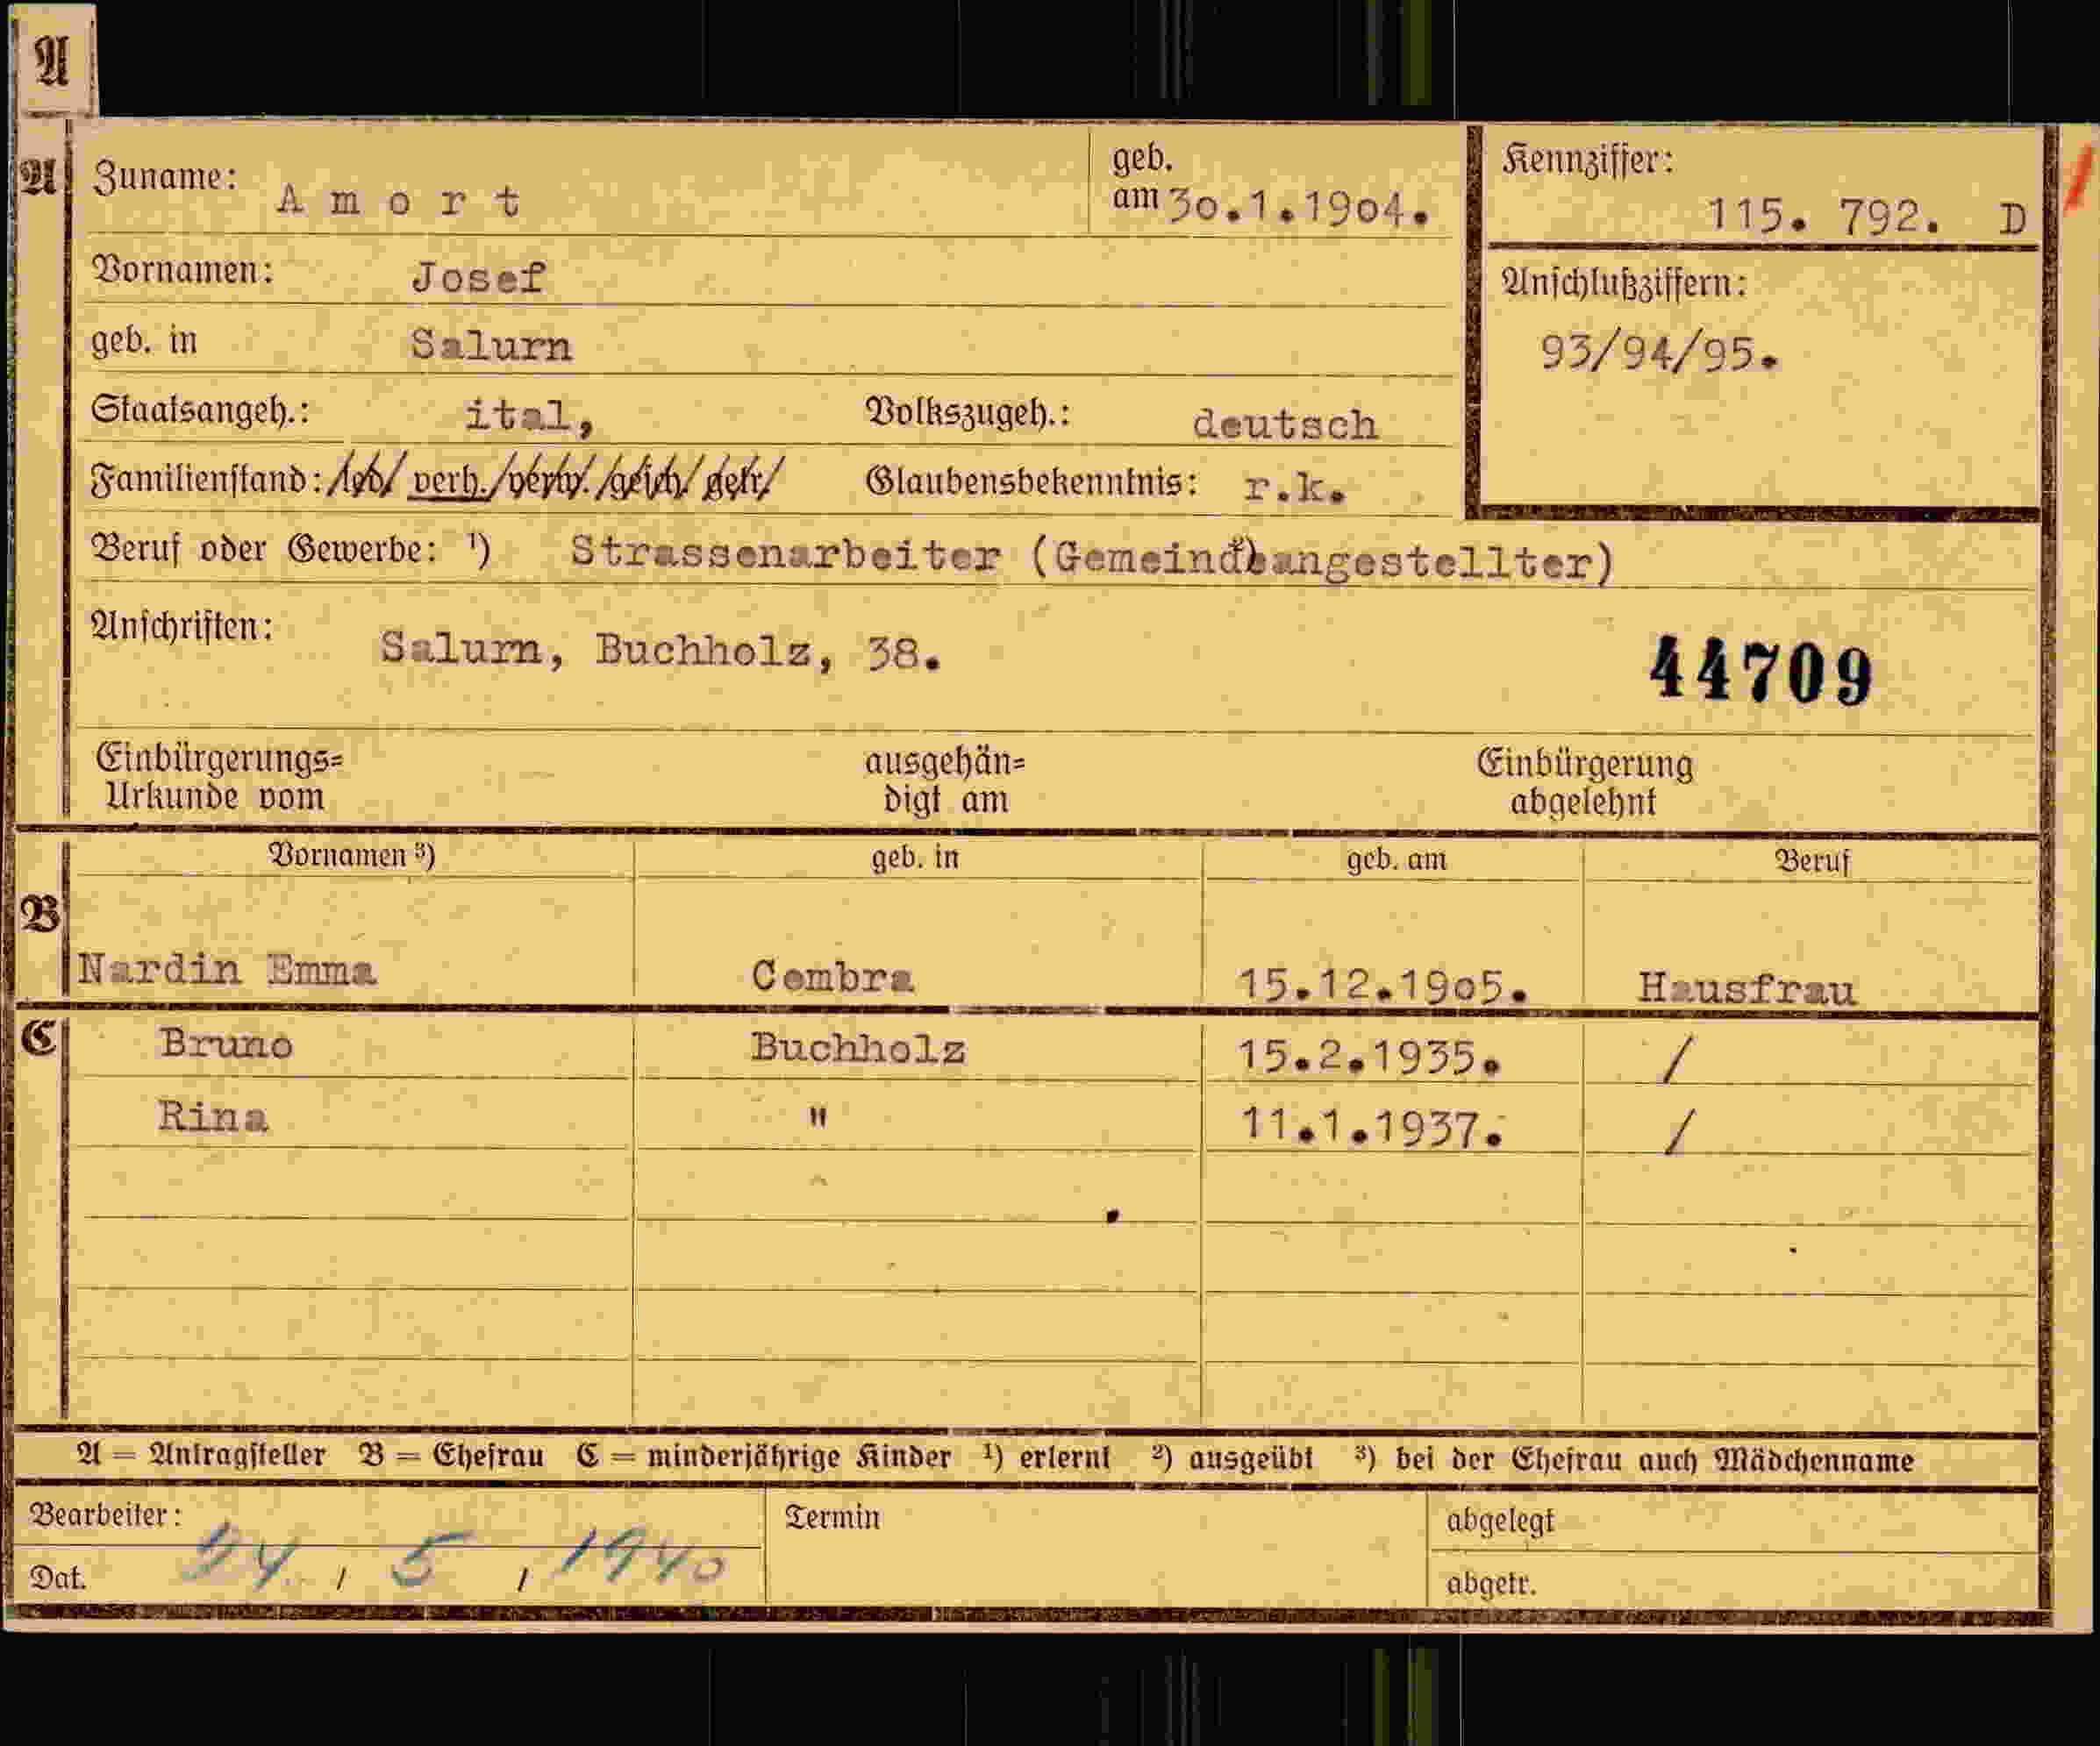 A
A
Zuname: Amort
geb. am 30.1.1904.
Kennziffer: 115. 792. D
Vornamen: Josef
Anschlußziffern:
93/94/95.
geb. in Salurn
Staatsangeh.: ital, Volkszugeh.: deutsch
Familienstand: led/ verh./verw./gesch/getr/ Glaubensbekenntnis: r.k.
Beruf oder Gewerbe: ¹) Strassenarbeiter (Gemeindeangestellter)
Anschriften: Salurn, Buchholz, 38.
44709
Einbürgerungs= ausgehän= Einbürgerung
Urkunde vom digt am abgelehnt
Vornamen ³) geb. in geb. am Beruf
B
Nardin Emma Cembra 15.12.1905. Hausfrau
C Bruno Buchholz 15.2.1935. /
Rina " 11.1.1937. /
A = Antragsteller B = Ehefrau C = minderjährige Kinder ¹) erlernt ²) ausgeübt ³) bei der Ehefrau auch Mädchenname
Bearbeiter: Termin abgelegt
Dat. 24 / 5 / 1940 abgetr.